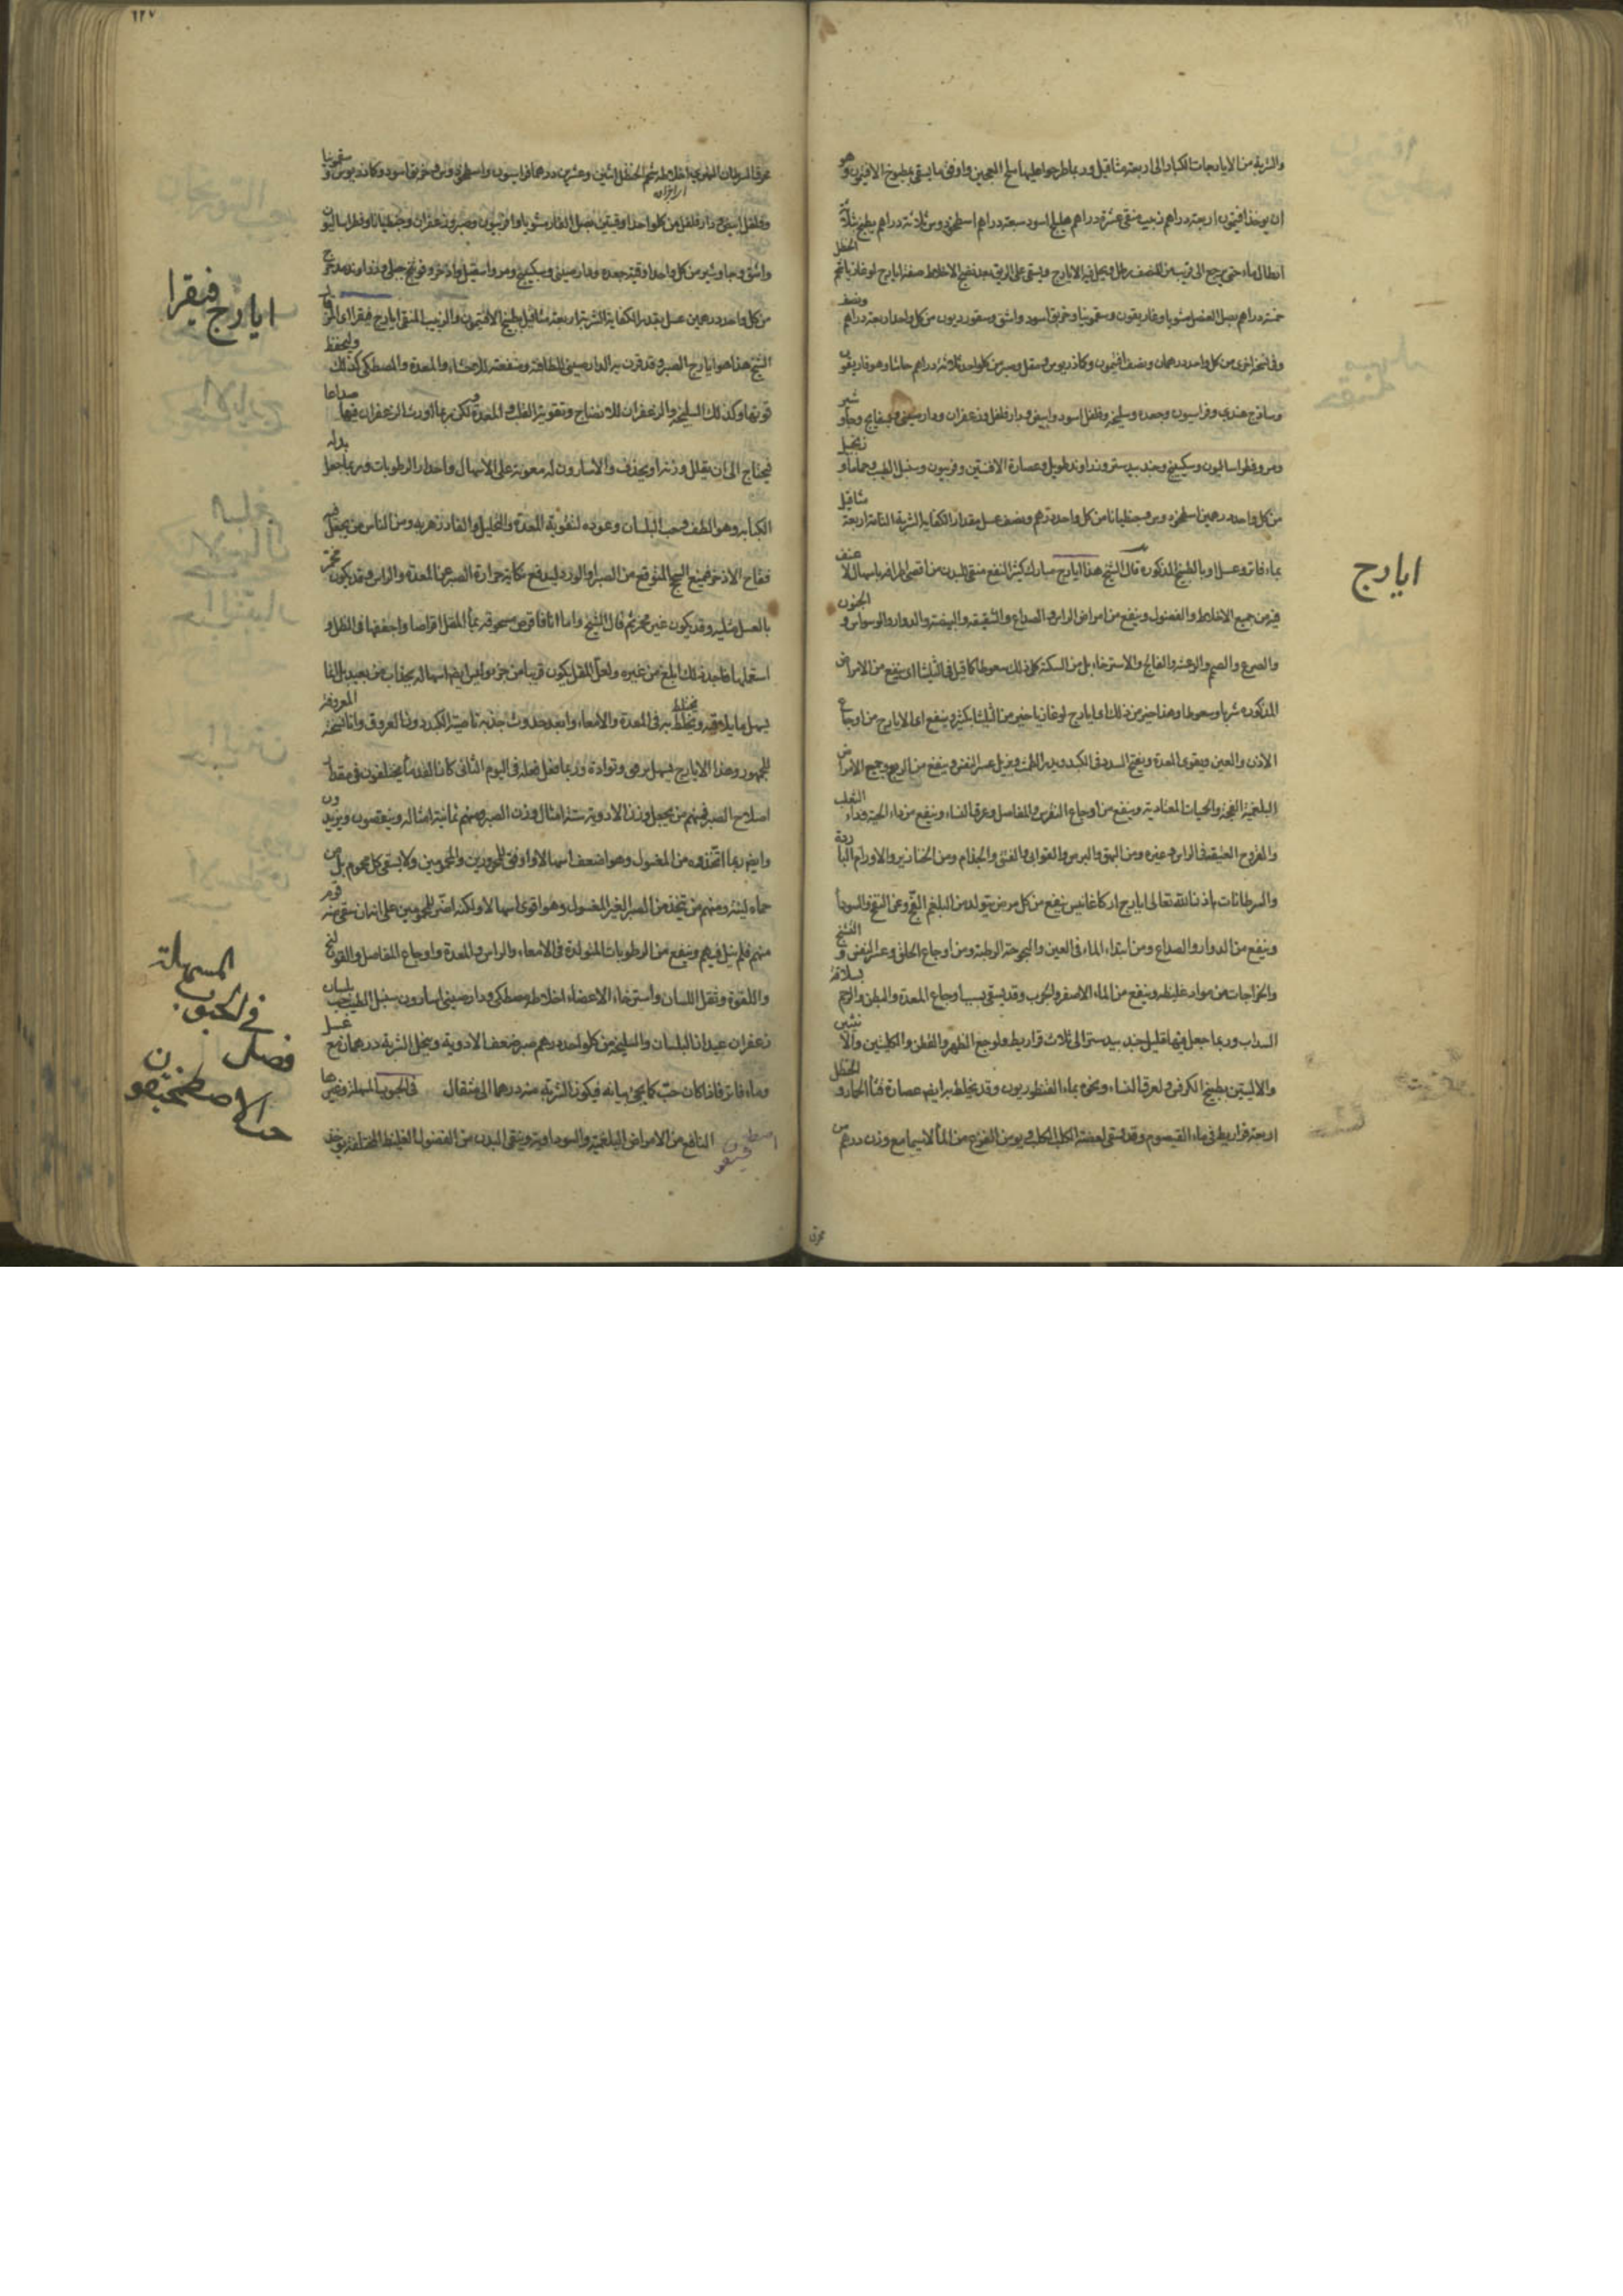 والشربة من الايارجات الكبار الى اربعة مثاقيل وربما طرحوا عليها ملح العجين واوفق ما يسقى بمطبوخ الافتيمون وهو
ان يوخذ افتيمون اربعة دراهم زبيب منقى عشرة دراهم هليلج اسود سبعة دراهم اسطوخودوس ثلاثة دراهم يطبخ بثلاثة
ارطال ماء حتى يرجع الى قريب من النصف رطل ويحل فيه الايارج ويسقى على الريق بعد نضج الاخلاط صفة ايارج لوغاذيا شحم الحنظل
خمسة دراهم بصل العنصل مشويا وغاريقون وسقمونيا وخربق اسود واشق وسقورديون من كل واحد اربعة دراهم ونصف
وفي نسخة اخرى من كل واحد درهمان ونصف افتيمون وكمادريوس ومقل وصبر من كل واحد ثلاثة دراهم حاشا وهوفاريقون
وساذج هندي وفراسيون وجعده وسليخه وفلفل اسود وابيض ودار فلفل وزعفران ودارصيني وبسفايج وجاوشير
ومر وفطراساليون وسكبينج وجندبيدستر وزراوند طويل وعصارة الافسنتين وفربيون وسنبل الطيب وحماما وزنجبيل
من كل واحد درهمين اسطوخودوس وجنطيانا من كل واحد درهم ونصف عسل بمقدار الكفاية الشربة التامة اربعة مثاقيل
بماء فاتر وعسل او بالطبيخ المذكوره قال الشيخ هذا ايارج مبارك كثير النفع منقى للبدن من اقصى اطرافه باسهال لا عنف
فيه من جميع الاخلاط والفضول وينفع من امراض الراس والصداع والشقيقه والبيضه والدوار والوسواس والجنون
والصرع والصمم والرعشه والفالج والاسترخاء بل من السكتة كل ذلك سعوطا كما قيل في الثليثا اى ينفع من الامراض
المذكوره شربا وسعوطا وهذا خير من ذلك اى ايارج لوغاذيا خير من الثليثا بكثير وينفع اى الايارج من اوجاع
الاذن والعين ويقوى المعدة ويفتح السدد في الكبد ويدر الطمث ويزيل عسر النفس وينفع من الربع وجميع الامراض
البلغمية الفجة والحميات المعتاديه وينفع من اوجاع النقرس والمفاصل وعرق النساء وينفع من داء الحية وداء الثعلب
والقروح العتيقه في الراس وغيره ومن البهق والبرص والقوابى والقمل والجذام ومن الخنازير والاورام الباردة
والسرطانات باذن الله تعالى ايارج اركاغانيس ينفع من كل مرض يتولد من البلغم اللزج وعن المرة السودا
وينفع من الدوار والصداع ومن ابتداء الماء في العين والبحوحة الرطبة ومن اوجاع الحلق وعسر النفس والتشنج
والخراجات من مواد غليظه وينفع من الماء الاصفر والجرب وقد يسقى بسبب اوجاع المعدة والبطن والرحم بسلاقة
السداب وربما جعل فيها قليل جندبيدستر الى ثلاث قراريط ولوجع الظهر والقطن والكليتين والانثيين
والاليتين بطبيخ الكرفس ولعرق النساء ونحوه بماء القنطوريون وقد يخلط به ايضا عصارة قثا الحمار والحنظل
اربعة قراريط في ماء القيصوم وقد يسقى لعضة الكلب الكلب ويومن الفزع من الماء لاسيما مع وزن درهم من
محرق
ايارج
٢٢٧
محرق السرطان النهري اخلاطه شحم الحنظل اثنى وعشرين درهما فراسيون واسطوخودوس وخربق اسود وكمادريوس وسقمونيا
وفلفل ابيض ودار فلفل من كل واحد اوقيتين بصل الفار مشويا وافربيون وصبر وزعفران وجنطيانا وفطراساليون
واشق وجاوشير من كل واحد اوقية جعده ودارصيني وسكبينج ومر واسقيل واذخر وفوتنج جبلي وزراوند مدحرج
من كل واحد درهمين عسل بقدر الكفاية الشربة اربعة مثاقيل بطبيخ الافتيمون والزبيب المنقى ايارج فيقرا اى المر قال
الشيخ هذا هو ايارج الصبر وقد قرن به الدارصيني للطافته ومنفعته للاحشاء والمعدة والمصطكى كذلك وليحفظ
قوتها وكذلك السليخة والزعفران للانضاج وتقوية القلب والمعدة لكن ربما اورث الزعفران فيها صداعا
فيحتاج الى ان يقلل وزنه او يحذف والاسارون له معونة على الاسهال واحدار الرطوبات وربما جعل بدله
الكبابه وهو الطف وحب البلسان وعوده لتقوية المعدة والتحليل والفادزهريه ومن الناس من يجعل فيه
فقاح الاذخر فيمنع السحج المتوقع من الصبر او الورد ليدفع نكاية حرارة الصبر عن المعدة والراس وقد يكون مخمر
بالعسل مثليه وقد يكون غير مخمر ثم قال الشيخ واما انا فاقرص مسحوقه بماء المقل اقراصا واجففها في الظل و
استعملها فاجد ذلك ابلغ من غيره ولعل المقل يكون قريبا من جزء وليس ايضا اسهاله بجذاب من بعيد بل انما
يسهل ما يلاقيه ويختلط به في المعدة والامعاء وابعد حدوث جذبه ناحية الكبد دون العروق واما نسخته المعروفة
للجمهور وهذا الايارج يسهل برفق وتوادة وربما فعل فعله في اليوم الثاني كان القدما يختلفون في مقدار
اصلاح الصبر فمنهم من يجعل وزن الادوية ستة امثال وزن الصبر ومنهم ثمانية امثاله وينقصون ويزيدون
وايضا ربما اتخذوه من المغسول وهو اضعف اسهالا واوفق للمحرورين والمحمومين ولا يسقى كل محموم بل من
حماه لينة ومنهم من يتخذ من الصبر الغير المغسول وهو اقوى اسهالا ولكنه اضر للمحمومين على انه ان سقى منه قوم
منهم فلم ينل فيهم وينفع من الرطوبات المتولدة في الامعاء والراس والمعدة واوجاع المفاصل والقولنج
واللقوة وثقل اللسان واسترخاء الاعضاء اخلاطه مصطكى ودارصيني اسارون سنبل الطيب حب بلسان
زعفران عيدان البلسان والسليخه من كل واحد درهم صبر ضعف الادوية وينخل الشربة درهمان مع عسل
وماء فاتر فاذا كان حب كما يجئ بيانه فيكون الشربة منه درهما الى مثقال في الحبوب المسهلة وغيرها
اصطمخيقون النافع من الامراض البلغمية والسوداوية وينقى البدن من الفضول الغليظ المختلفة يوخذ
ايارج فيقرا
فصل في الحبوب المسهلة
حب الاصطمخيقون